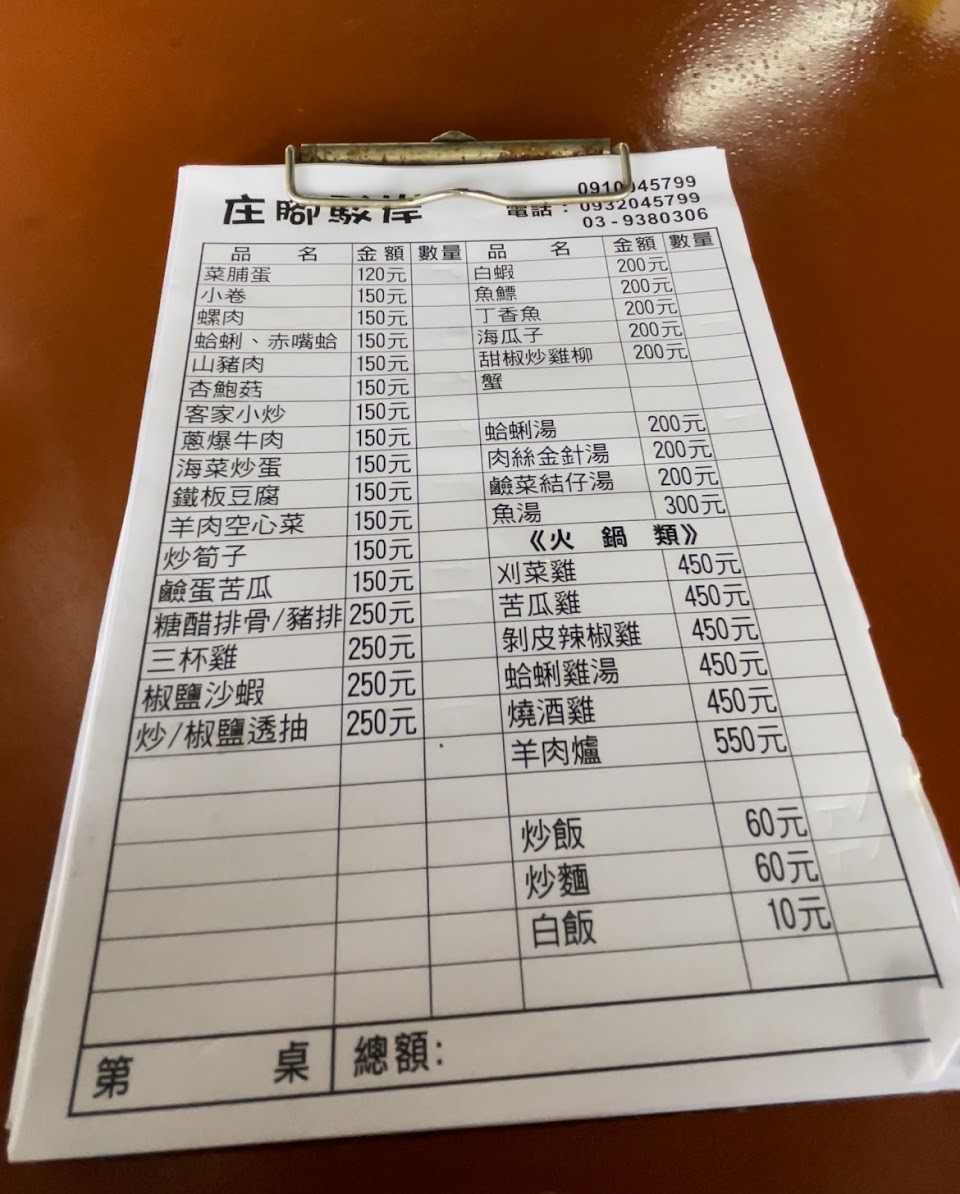 庄腳駿岸
0910045799
電話：0932045799
03-9380306
品 名 金額 數量
菜脯蛋 120元
小卷 150元
螺肉 150元
蛤蜊、赤嘴蛤 150元
山豬肉 150元
杏鮑菇 150元
客家小炒 150元
蔥爆牛肉 150元
海菜炒蛋 150元
鐵板豆腐 150元
羊肉空心菜 150元
炒筍子 150元
鹹蛋苦瓜 150元
糖醋排骨/豬排 250元
三杯雞 250元
椒鹽沙蝦 250元
炒/椒鹽透抽 250元
品 名 金額 數量
白蝦 200元
魚鰾 200元
丁香魚 200元
海瓜子 200元
甜椒炒雞柳 200元
蟹
蛤蜊湯 200元
肉絲金針湯 200元
鹹菜結仔湯 200元
魚湯 300元
《火鍋類》
刈菜雞 450元
苦瓜雞 450元
剝皮辣椒雞 450元
蛤蜊雞湯 450元
燒酒雞 450元
羊肉爐 550元
炒飯 60元
炒麵 60元
白飯 10元
第 桌 總額: